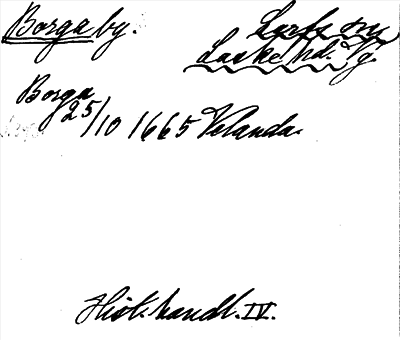 Borga by. Lerbo sn
Laske hd. Vg.
Borga
25/10 1665 Velanda.
Hist. handl. IV.